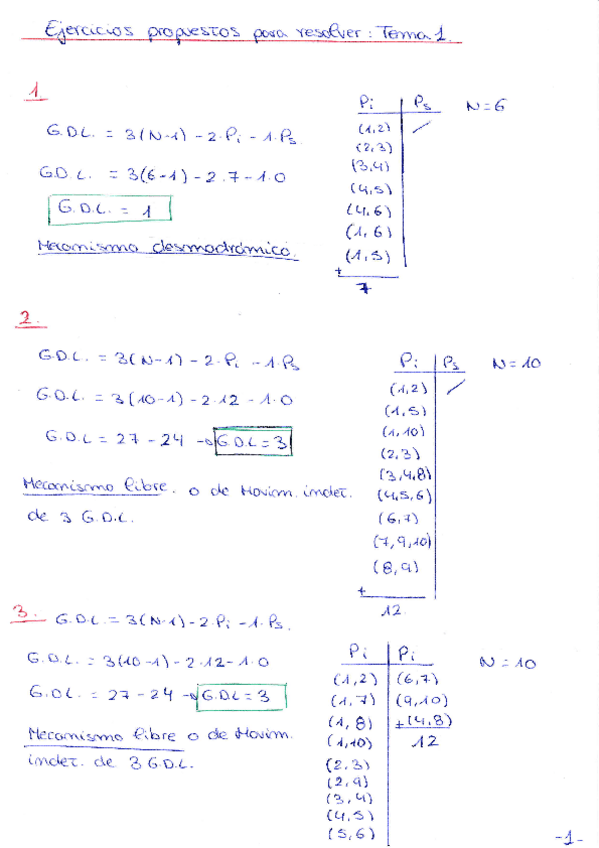 Ejercicios propuestos para resolver: Tema 1.
1
Pi Ps N=6
G.D.L. = 3(N-1) - 2·Pi - 1·Ps
G.D.L. = 3(6-1) - 2·7 - 1·0
G.D.L. = 1
Mecanismo desmodrómico.
(1,2)
(2,3)
(3,4)
(4,5)
(4,6)
(1,6)
(1,5)
+
7
2.
G.D.L. = 3(N-1) - 2·Pi - 1·Ps
G.D.L. = 3(10-1) - 2·12 - 1·0
G.D.L = 27 - 24 → G.D.L = 3
Mecanismo libre. o de Movim. indet.
de 3 G.D.L.
Pi Ps N=10
(1,2)
(1,5)
(1,10)
(2,3)
(3,4,8)
(4,5,6)
(6,7)
(7,9,10)
(8,9)
+
12
3. G.D.L = 3(N-1) - 2·Pi - 1·Ps.
G.D.L. = 3(10-1) - 2·12 - 1·0
G.D.L. = 27 - 24 → G.D.L = 3
Mecanismo libre o de Movim.
indet. de 3 G.D.L.
Pi Pi N=10
(1,2) (6,7)
(1,7) (9,10)
(1,8) +(4,8)
(1,10) 12
(2,3)
(2,9)
(3,4)
(4,5)
(5,6)
-1-